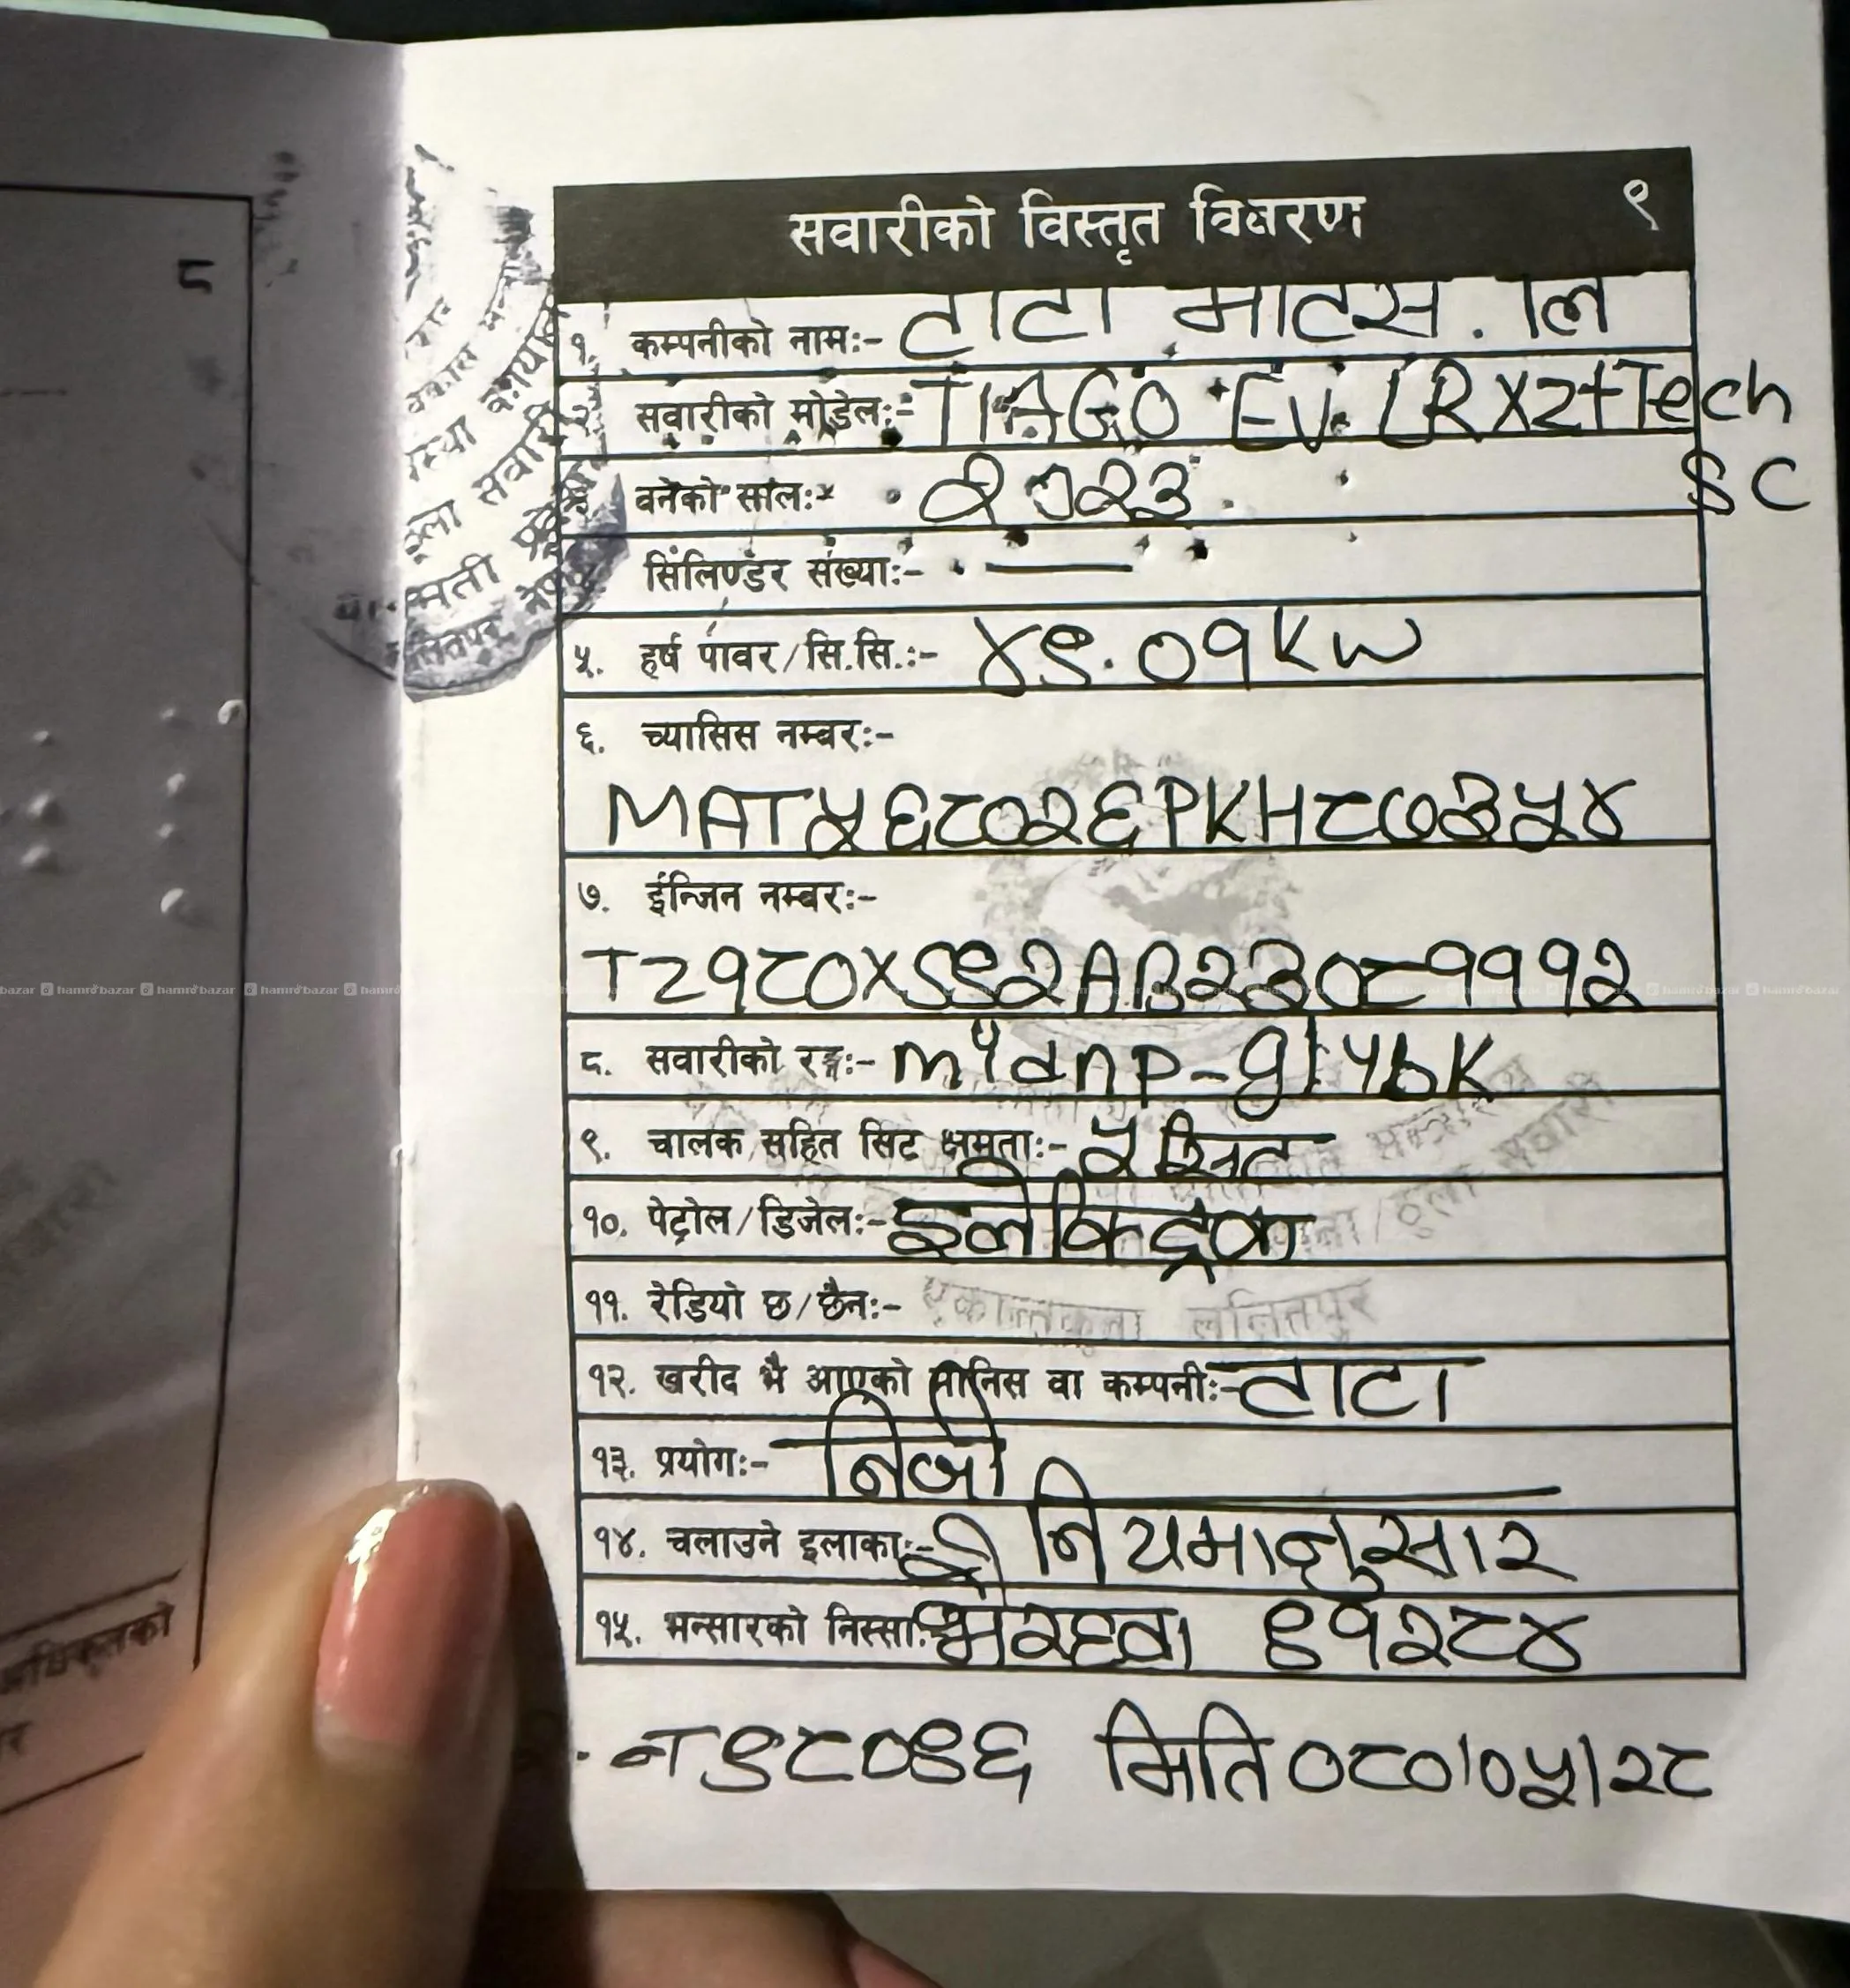 ८
सवारीको विस्तृत विवरण ९
१. कम्पनीको नामः- टाटा मोटर्स. लि
सवारीको मोडेलः- TIAGO EV. LR XZ+Tech
वनेको सालः- २०२३ SC
सिलिण्डर संख्याः- —
५. हर्ष पावर/सि.सि.ः- ४९.०१KW
६. च्यासिस नम्बरः-
MAT५६८०२६PKH८७३५४
७. ईन्जिन नम्बरः-
TZ१८०XS९२AB२३०८१११२
८. सवारीको रङ्गः-
९. चालक सहित सिट क्षमताः- ५ सिट
१०. पेट्रोल/डिजेलः- इलेक्ट्रिक
११. रेडियो छ/छैनः-
१२. खरीद भै आएको मानिस वा कम्पनीः- टाटा
१३. प्रयोगः- निजी
१४. चलाउने इलाकाः- नियमानुसार
१५. भन्सारको निस्साः- भैरहवा ६१२८४
मिति ०८०/०५/२८
अधिकृतको
ललितपुर
hamrobazar